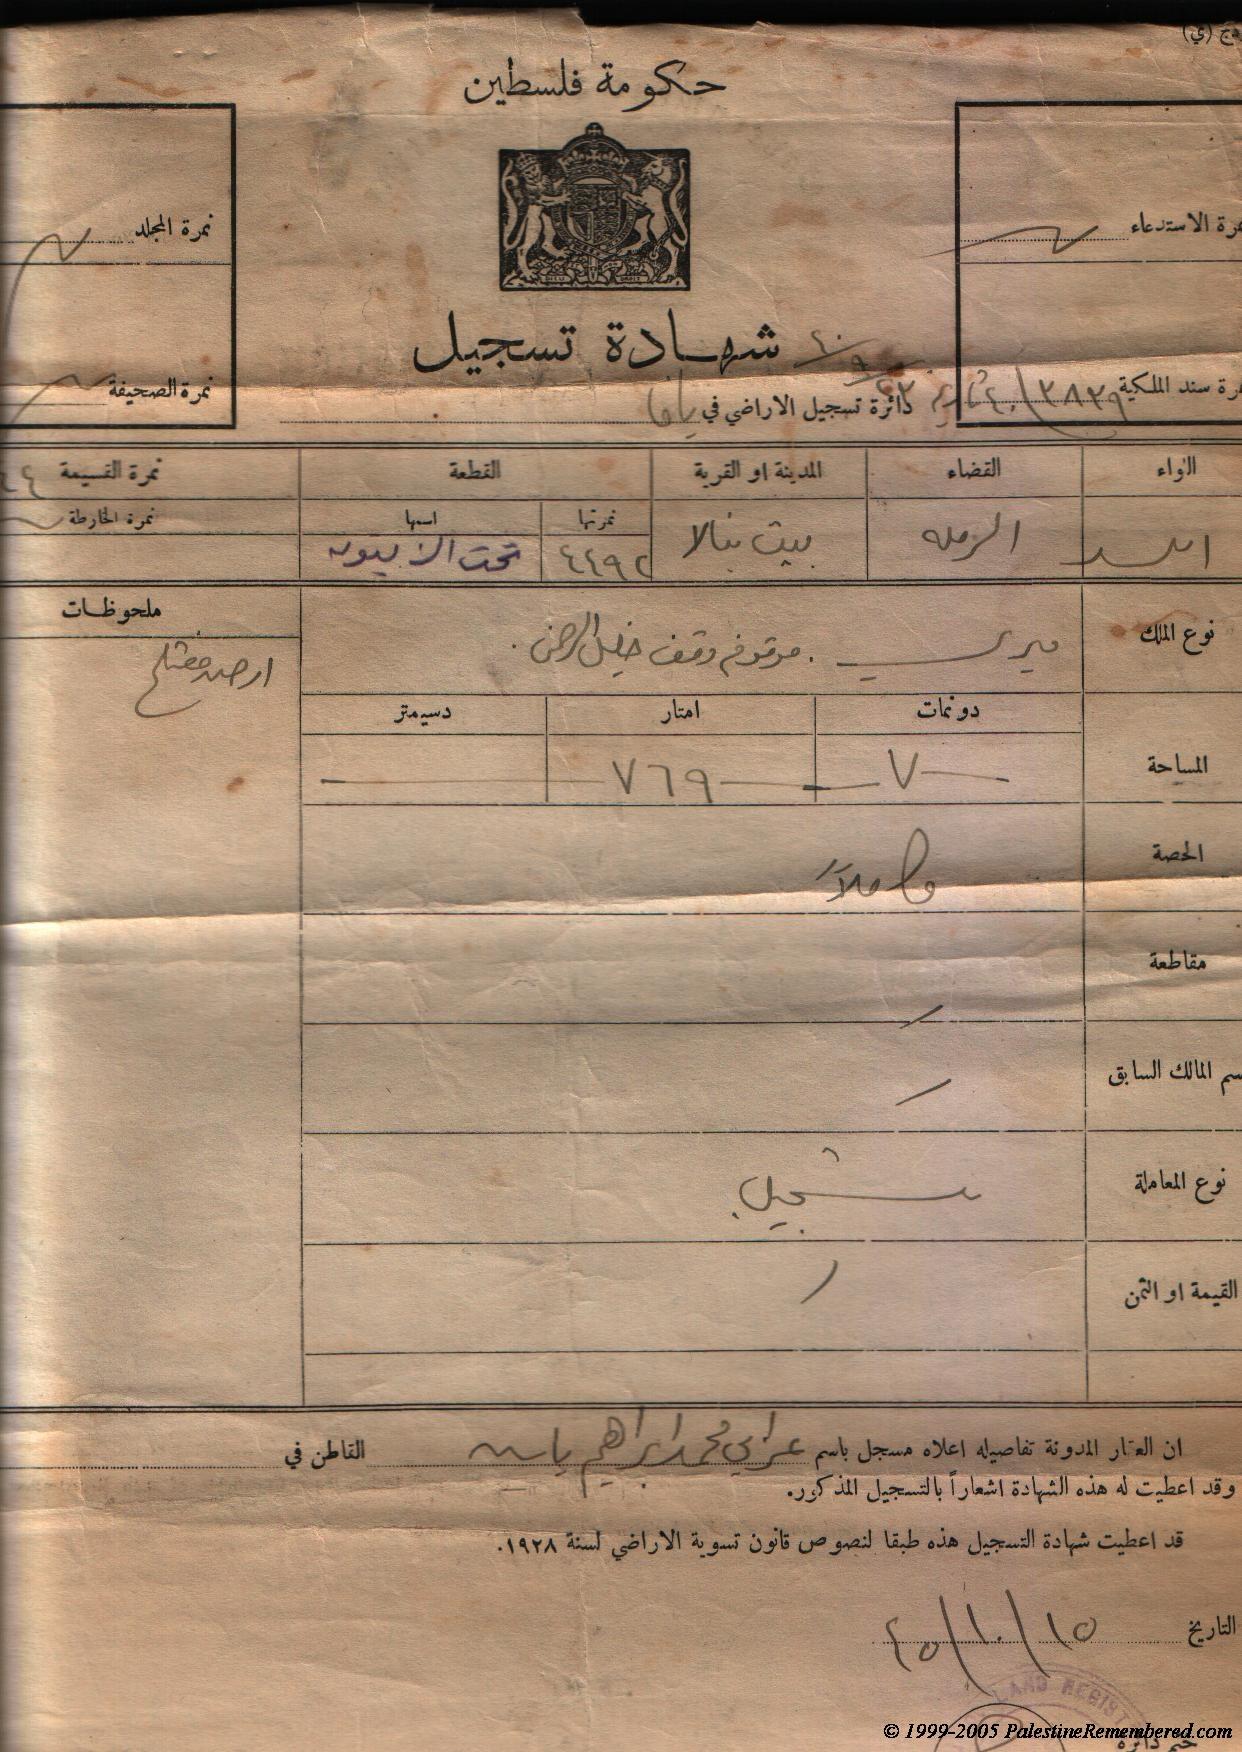 حكومة فلسطين
نمرة المجلد
الاستدعاء
شهادة تسجيل
نمرة الصحيفة
سند الملكية ٣٨٣٩
دائرة تسجيل الاراضي في يافا
الواء
القضاء
المدينة او القرية
القطعة
نمرة القسيمة
نمرتها
اسمها
نمرة الخارطة
اللد
الرمله
بيت نبالا
٤٤٩٢
تحت الزيتونه
ملحوظات
نوع الملك
ميري موقوفه وقف خليل الرحمن
ارض مفتلح
دونمات
امتار
دسيمتر
المساحة
٧
٧٦٩
الحصة
كاملا
مقاطعة
المالك السابق
نوع المعاملة
تسجيل
القيمة او الثمن
ان العقار المدونة تفاصيله اعلاه مسجل باسم عرابي محمد ابراهيم ياسين القاطن في
وقد اعطيت له هذه الشهادة اشعاراً بالتسجيل المذكور.
قد اعطيت شهادة التسجيل هذه طبقا لنصوص قانون تسوية الاراضي لسنة ١٩٢٨.
التاريخ ١٥/١٠/٤٥
LAND REGIST
ختم دائرة
© 1999-2005 PalestineRemembered.com